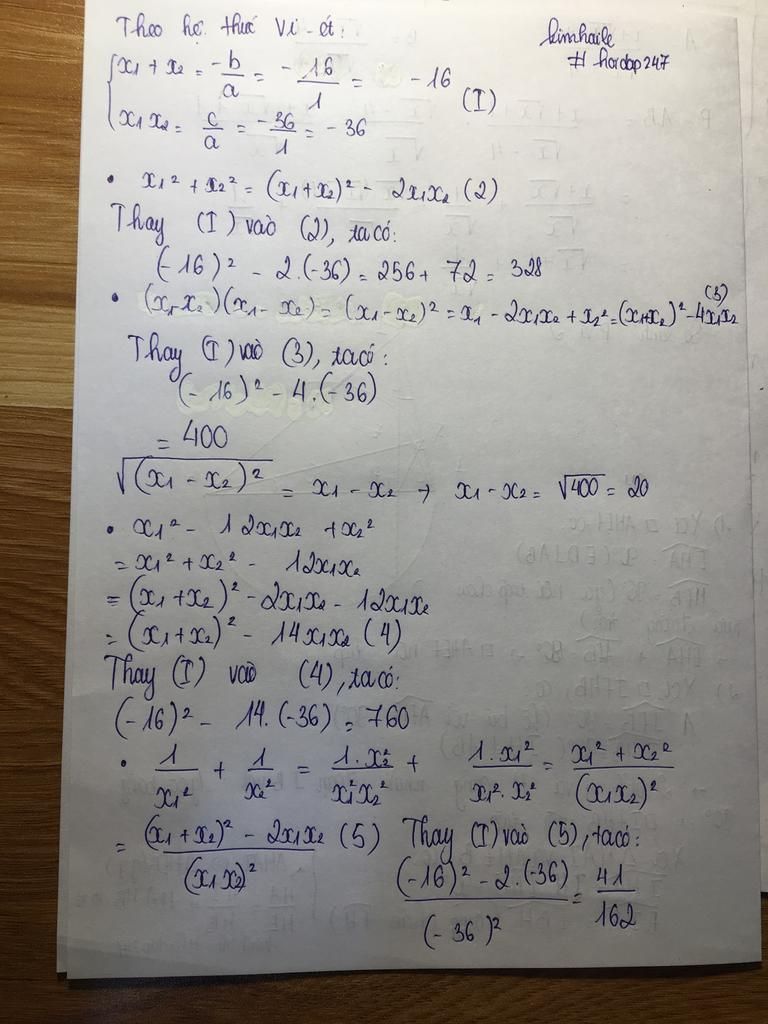 Theo hệ thức Vi-ét:
kimhaile
# hoidap247
{ x₁ + x₂ = -b/a = -16/1 = -16
{ x₁x₂ = c/a = -36/1 = -36 (I)
• x₁² + x₂² = (x₁+x₂)² - 2x₁x₂ (2)
Thay (I) vào (2), ta có:
(-16)² - 2.(-36) = 256 + 72 = 328
• (x₁-x₂)(x₁-x₂) = (x₁-x₂)² = x₁ - 2x₁x₂ + x₂² = (x₁+x₂)² - 4x₁x₂ (3)
Thay (I) vào (3), ta có:
(-16)² - 4.(-36)
= 400
√((x₁ - x₂)²) = x₁ - x₂ → x₁ - x₂ = √400 = 20
• x₁² - 12x₁x₂ + x₂²
= x₁² + x₂² - 12x₁x₂
= (x₁+x₂)² - 2x₁x₂ - 12x₁x₂
= (x₁+x₂)² - 14x₁x₂ (4)
Thay (I) vào (4), ta có:
(-16)² - 14.(-36) = 760
• 1/x₁² + 1/x₂² = 1.x₂²/x₁²x₂² + 1.x₁²/x₁².x₂² = (x₁² + x₂²)/(x₁x₂)²
= ((x₁+x₂)² - 2x₁x₂)/(x₁x₂)² (5) Thay (I) vào (5), ta có:
((-16)² - 2.(-36))/(-36)² = 41/162